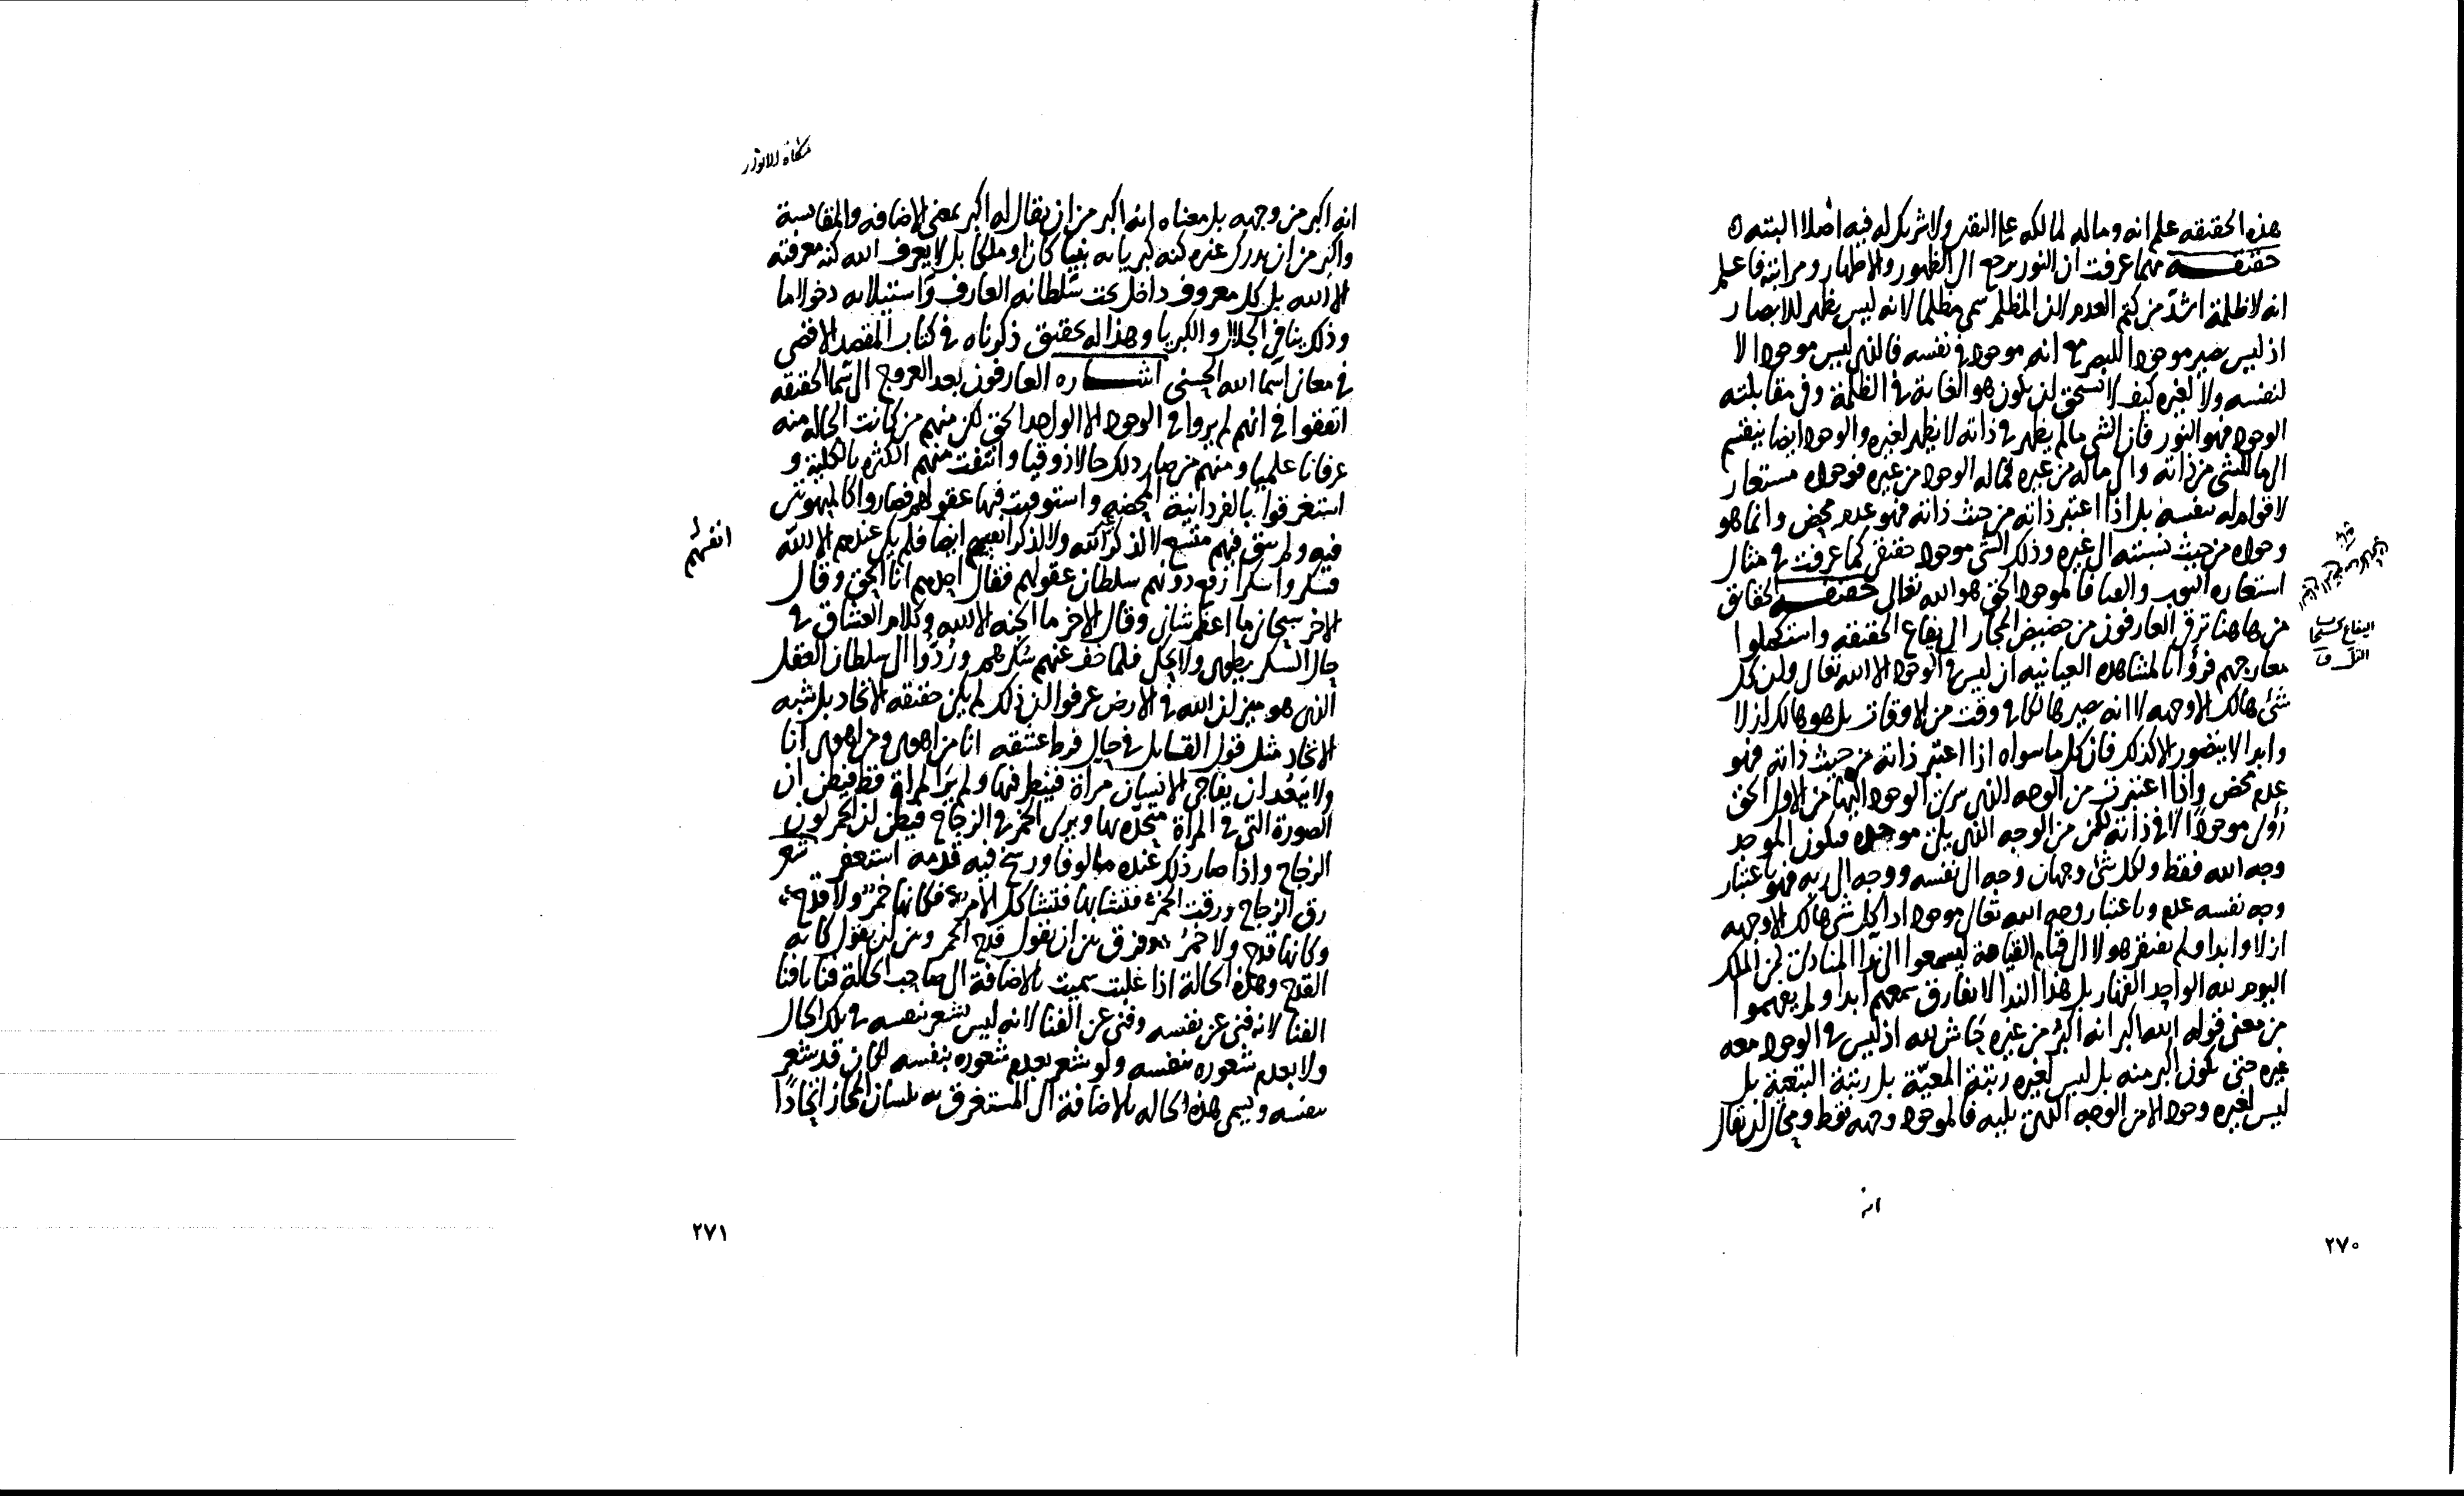 هذه الحقيقه علم انه وماله لمالكه على التفرد ولا شريك له فيه اصلا البته
حقيقــه مهما عرفت ان النور يرجع الى الظهور والاظهار ومراتبه فاعلم
انه لا ظلمة اشد من كتم العدم لان المظلم سمى مظلما لانه ليس يظهر للابصار
اذ ليس يصير موجودا للبصير مع انه موجود في نفسه فالذى ليس موجودا لا
لنفسه ولا لغيره كيف لا يستحق ان يكون هو الغاية في الظلمة وفي مقابلته
الوجود فهو النور فان الشى ما لم يظهر في ذاته لا يظهر لغيره والوجود ايضا ينقسم
الى ما للشى من ذاته والى ماله من غيره فماله الوجود من غيره فوجوده مستعار
لا قوام له بنفسه بل اذا اعتبر ذاته من حيث ذاته فهو عدم محض وانما هو
وجوده من حيث نسبته الى غيره وذلك الشى موجود حقيقى كما عرفت في مثال
استعارة الثوب والغنا فالموجود الحق هو الله تعالى حقيقــه الحقائق
من هاهنا ترقى العارفون من حضيض المجاز الى يفاع الحقيقه واستكملوا
معارجهم فراوا بالمشاهده العيانيه ان ليس في الوجود الا الله تعالى وان كل
شئ هالك الا وجهه لا انه يصير هالكا في وقت من الاوقات بل هو هالك ازلا
وابدا لا يتصور الا كذلك فان كل ما سواه اذا اعتبر ذاته من حيث ذاته فهو
عدم محض واذا اعتبرت من الوجه الذى سرى الوجود اليها من الاول الحق
رؤى موجودًا لا في ذاته لكن من الوجه الذى يلى موجده فيكون الموجد
وجه الله فقط ولكل شئ وجهان وجه الى نفسه ووجه الى ربه فهو باعتبار
وجه نفسه عدم وباعتبار وجه الله تعالى موجود اذا كل شى هالك الا وجهه
ازلا وابدا ولم يفتقر هولا الى قيام القيامة ليسمعوا الندا المنادى لمن الملك
اليوم لله الواحد القهار بل هذا الندا لا يفارق سمعهم ابدا ولم يفهموا
من معنى قوله الله اكبر انه اكبر من غيره حاش لله اذ ليس في الوجود معه
غيره حتى يكون اكبر منه بل ليس لغيره رتبة المعيّة بل رتبة التبعية بل
ليس لغيره وجود الا من الوجه الذى يليه فالموجود وجهه فقط ومحال ان يقال
اليفاع
التل
انه
٢٧٠
مشكاة الانوار
انه اكبر من وجهه بل معناه انه اكبر من ان يقال له اكبر بمعنى الاضافه والمقايسة
واكبر من ان يدرك غيره كنه كبريايه نبيا كان او ملكا بل لا يعرف الله كنه معرفته
الا الله بل كل معروف داخل تحت سلطانه العارف واستيلايه دخولا ما
وذلك ينافى الجلال والكبريا وهذا له تحقيق ذكرناه في كتاب المقصد الاقصى
في معانى اسما الله الحسنى اشــاره العارفون بعد العروج الى سما الحقيقه
اتفقوا في انهم لم يروا في الوجود الا الواحد الحق لكن منهم من كانت الحاله منه
عرفانا علميا ومنهم من صار ذلك حالا ذوقيا وانتفت منهم الكثره بالكلية و
استغرقوا بالفردانية المحضه واستوفيت فيها عقولهم فصاروا كالمبهوتين
فيه ولم يبق فيهم متسع لا لذكر غير الله ولا لذكر انفسهم ايضا فلم يكن عندهم الا الله
انفسهم
فسكروا سكرا رفع دونهم سلطان عقولهم فقال احدهم انا الحق وقال
الاخر سبحانى ما اعظم شانى وقال الاخر ما في الجبه الا الله وكلام العشاق في
حال السكر يطوى ولا يحكى فلما خف عنهم سكرهم وردّوا الى سلطان العقل
الذى هو ميزان الله في الارض عرفوا ان ذلك لم يكن حقيقه الاتحاد بل شبه
الاتحاد مثل قول القايل في حال فرط عشقه انا من اهوى ومن اهوى انا
ولا يبعد ان يفاجى الانسان مراة فينظر فيها ولم ير المراة قط فيظن ان
الصورة التى في المراة متحده بها ويرى الخمر في الزجاج فيظن ان الخمر لون
الزجاج واذا صار ذلك عنده مالوفا ورسخ فيه قدمه استغفر شعر
رق الزجاج ورقت الخمر فتشابها فتشاكل الامر فكانها خمر ولا قدح
وكانها قدح ولا خمر وفرق بين ان يقول قدح الخمر وبين ان يقول كانه
القدح وهذه الحالة اذا غلبت سميت بالاضافة الى صاحب الحالة فنا بل فنا
الفنا لانه فنى عن نفسه وفنى عن الفنا لانه ليس يشعر بنفسه في تلك الحال
ولا بعدم شعوره بنفسه ولو شعر بعدم شعوره بنفسه لكان قد شعر
بنفسه ويسمى هذه الحاله بالاضافة الى المستغرق به بلسان المجاز اتحادًا
٢٧١